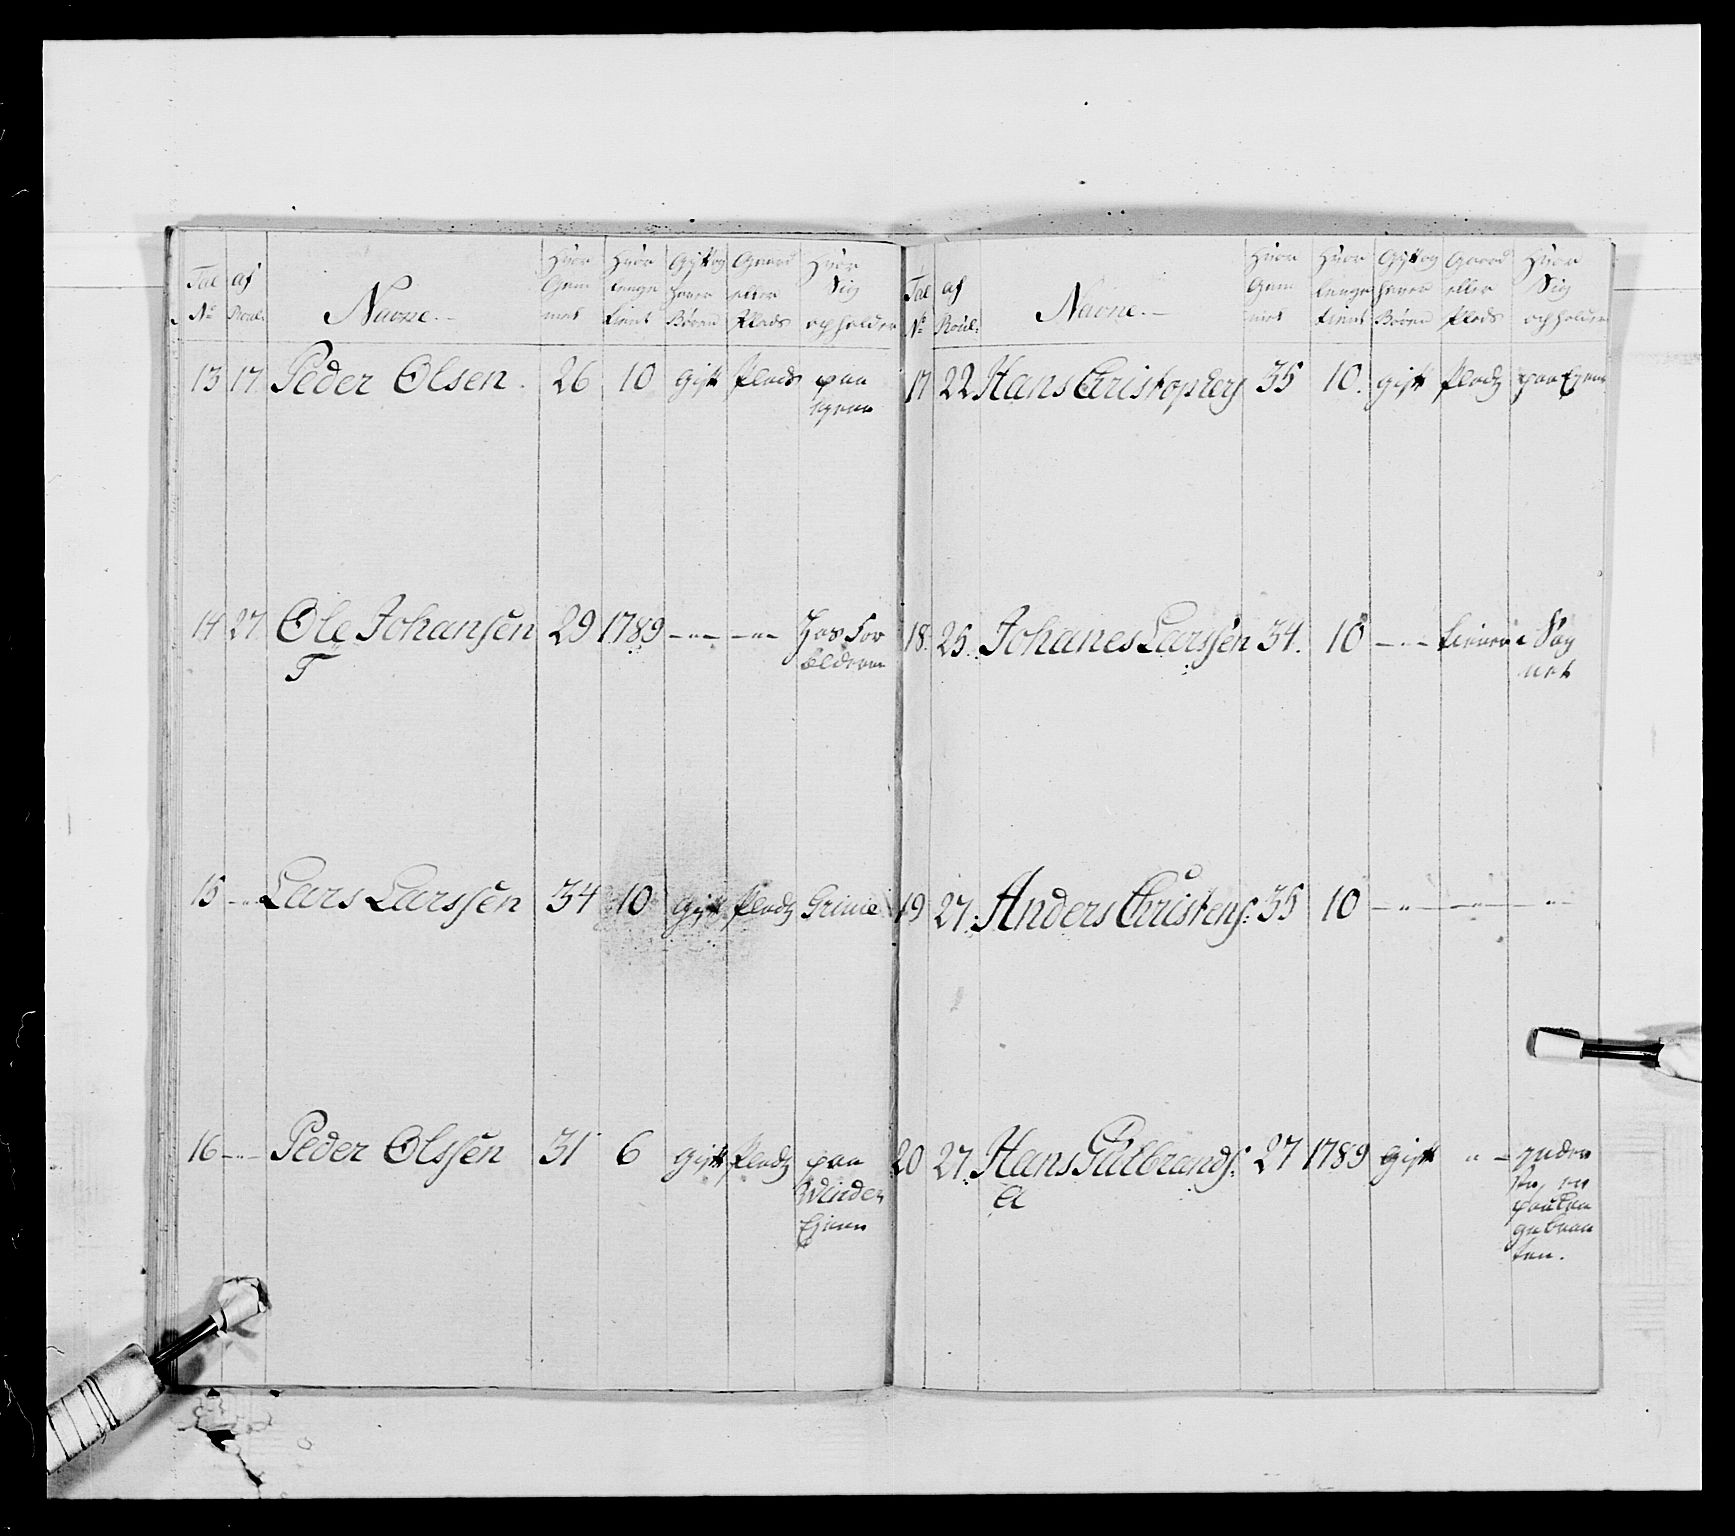 Tal No | af Roul. | Navne. | Hvor Gam mel | Hvor lenge tient | Gift og haver Børen | Gaard eller Plads | Hvor Sig opholder
13 | 17. | Peder Olsen. | 26 | 10 | gift | Plads | paa egnen
14 | 27. | Ole Johansen T | 29 | 1789 | -"- | -"- | Hos For ældrene
15 | -"- | Lars Larssen | 34 | 10 | gift | Pladz | Grime
16 | -"- | Peder Olssen | 31 | 6 | gift | Pladz | paa Egnen
Tal No | af Roul: | Navne. | Hvor Gam mel | Hvor lenge tient | Gift og haver Børen | Gaard eller Plads | Hvor Sig opholder
17 | 22 | Hans Christophers | 35 | 10. | gift | Pladz | paa Egnen
18. | 25. | Johanes Larssen | 34. | 10 | -"- | tienner | i Sog net
19 | 27. | Anders Christens: | 35 | 10 | -"- | -"- | -"-
20 | 27. | Hans Gulbrands: A | 27 | 1789 | gift | "